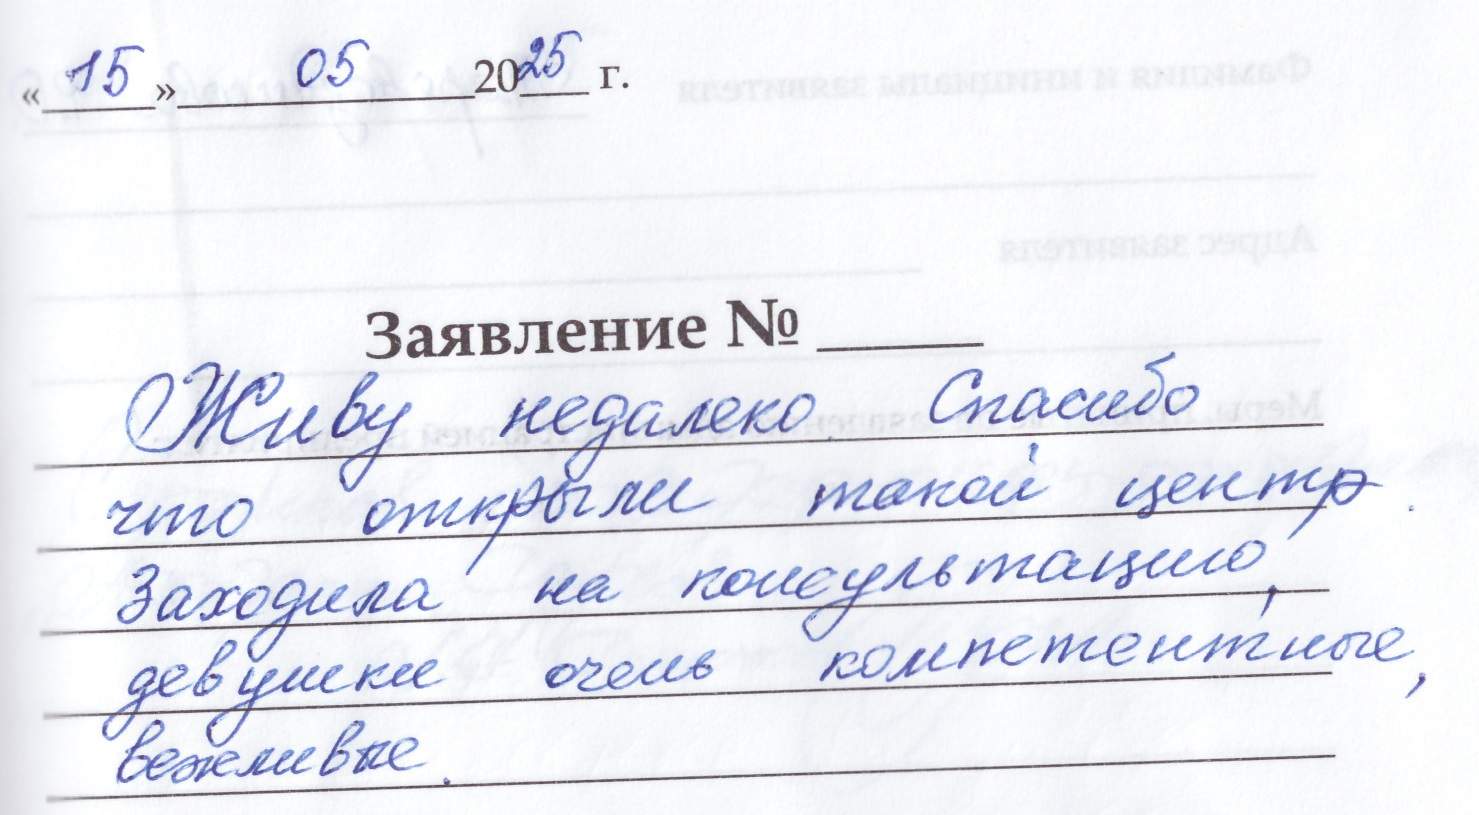 «15» 05 2025 г.
Заявление № ____
Живу недалеко. Спасибо
что открыли такой центр.
Заходила на консультацию,
девушки очень компетентные,
вежливые.